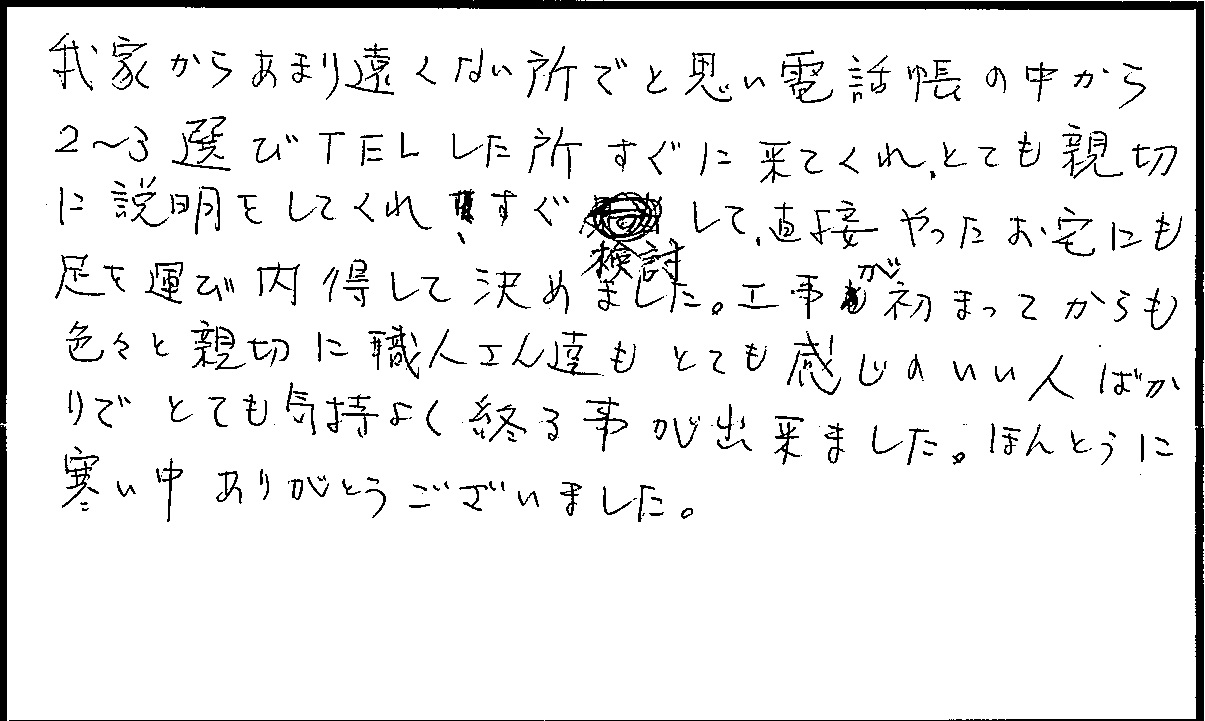 我家からあまり遠くない所でと思い電話帳の中から
2〜3選びTELした所すぐに来てくれ、とても親切
に説明をしてくれ、すぐ検討して、直接やったお宅にも
足を運び内得して決めました。工事が初まってからも
色々と親切に職人さん達もとても感じのいい人ばか
りでとても気持よく終る事が出来ました。ほんとうに
寒い中ありがとうございました。